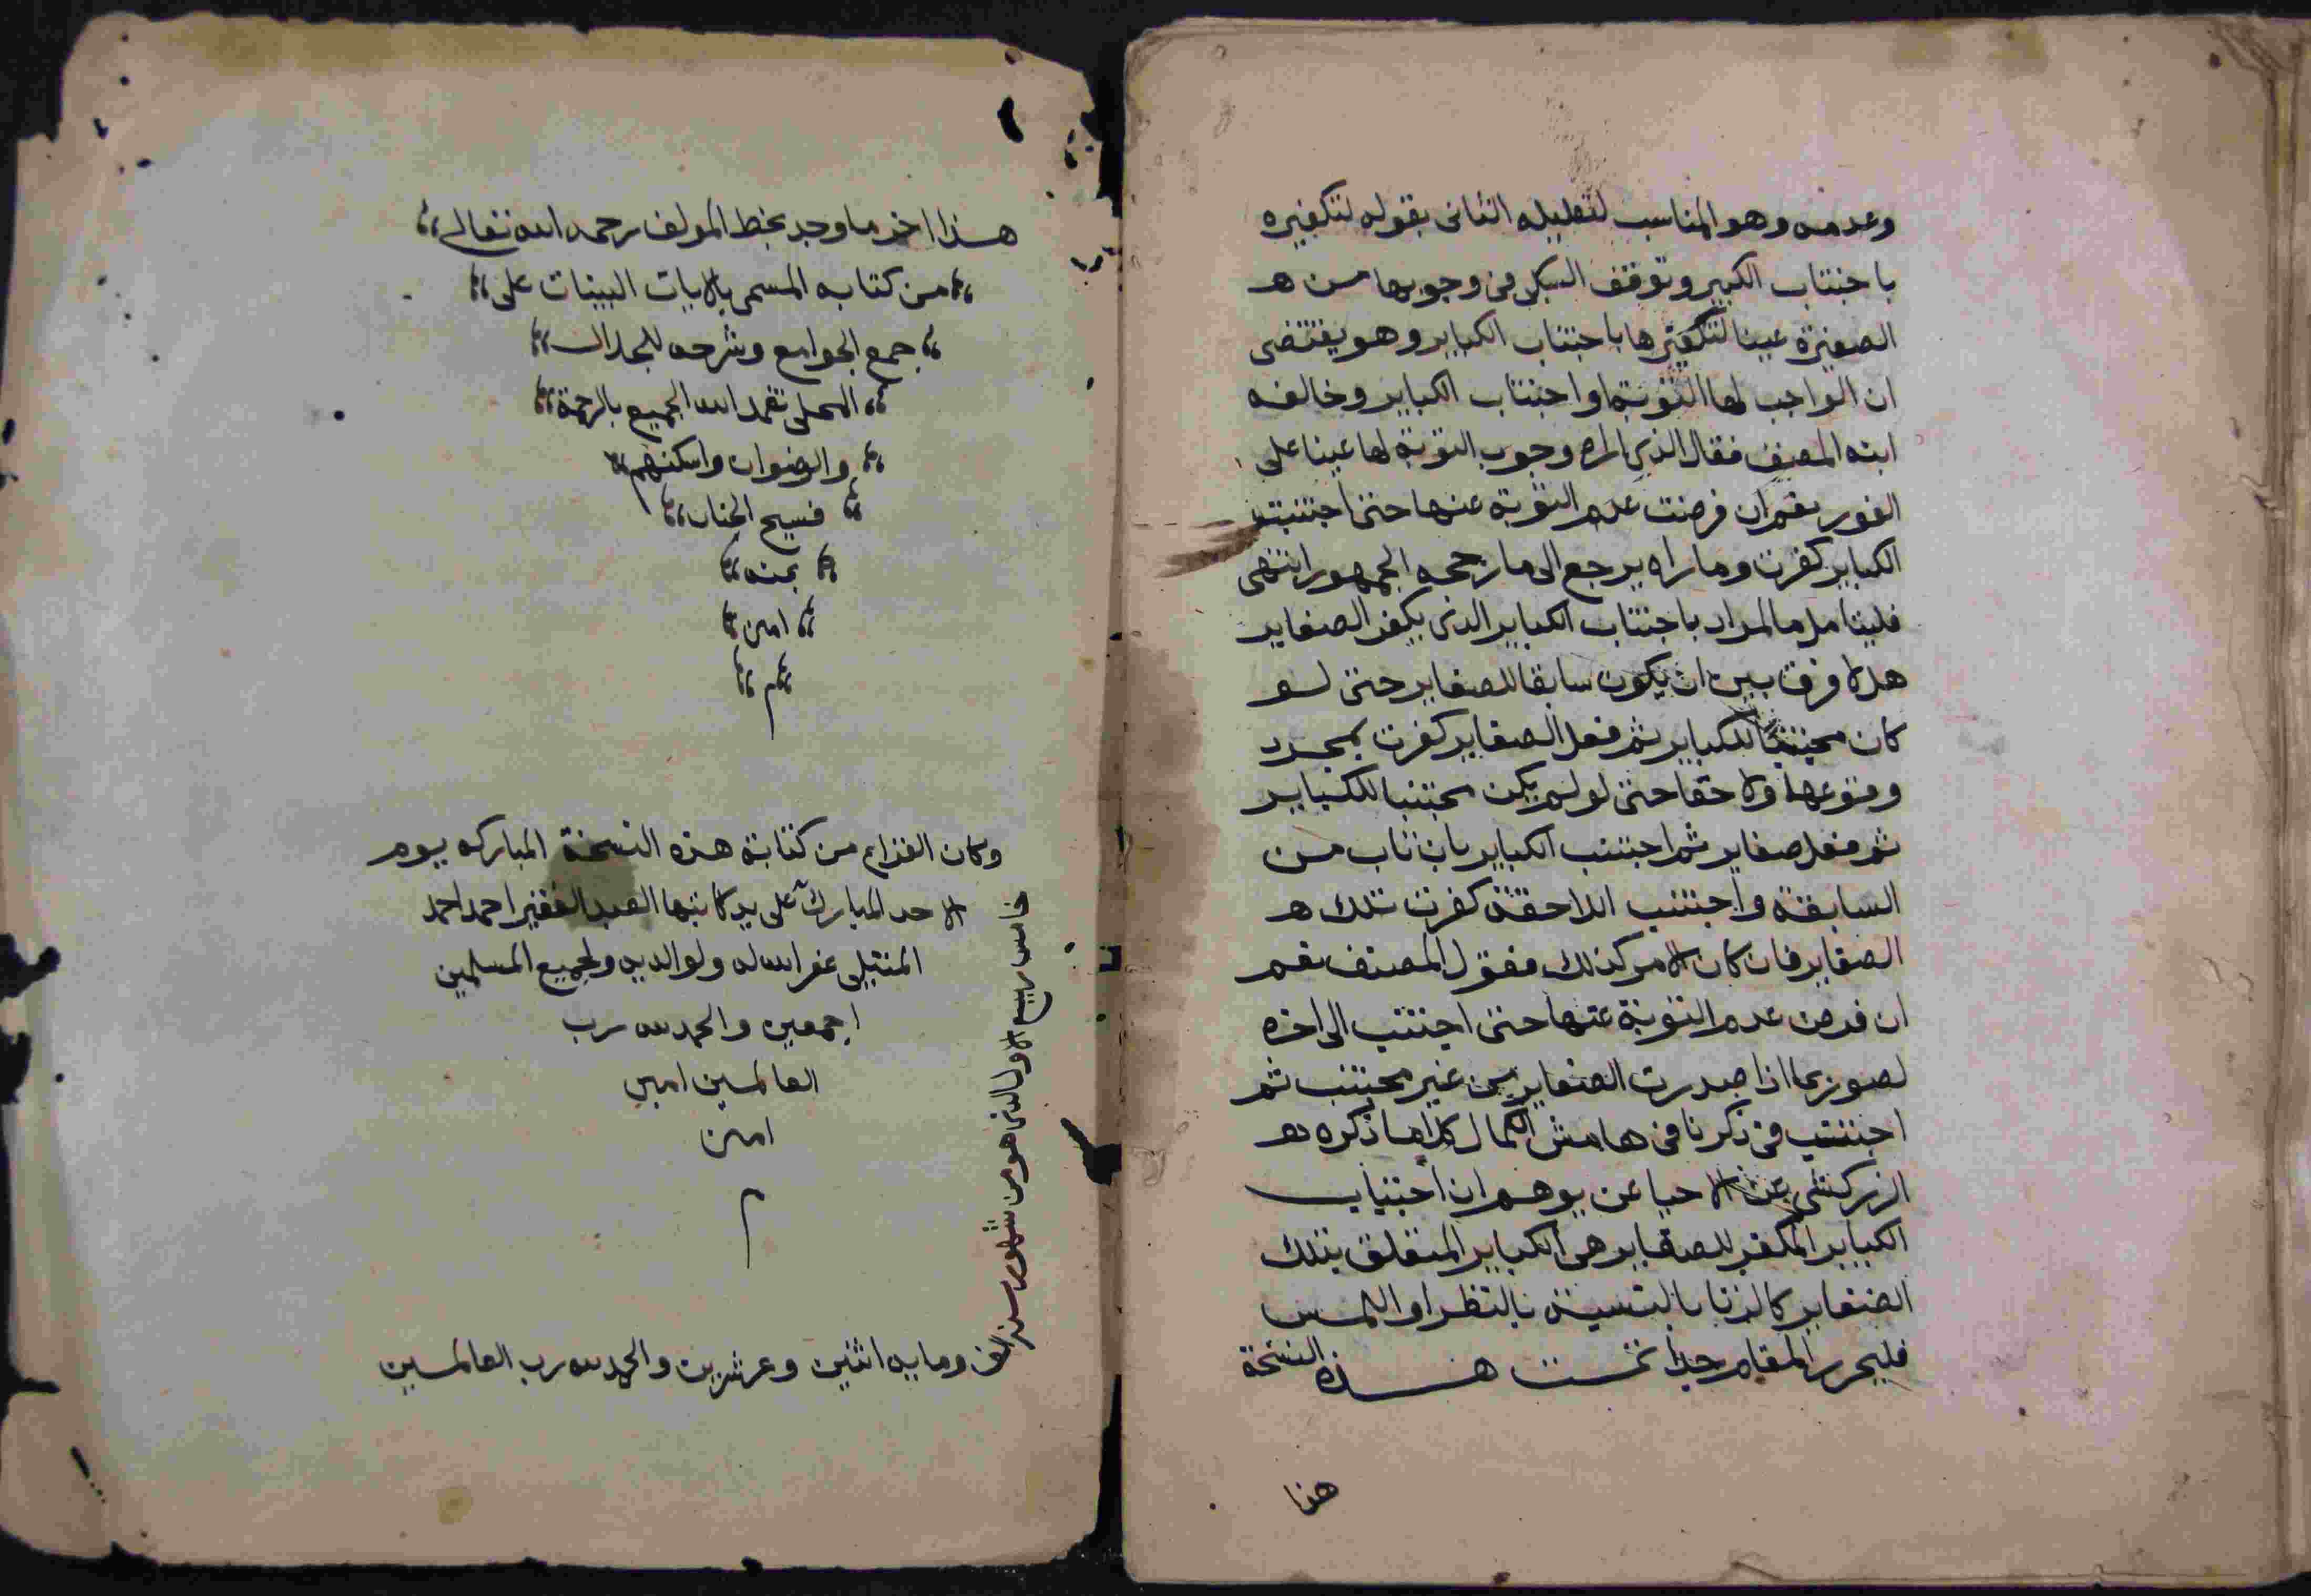 وعدمه وهو المناسب لتعليله الثانى بقوله لتكفيره
باجتناب الكبير وتوقف السبكى فى وجوبها من هـ
الصغيرة عينا لتكفيرها باجتناب الكباير وهو يقتضى
ان الواجب لها التوبة او اجتناب الكباير وخالفه
ابنه المصنف فقال الذي اراه وجوب التوبة لها عينا على
الفور نعم ان فرضت عدم التوبة عنها حتى اجتنبت
الكباير كفرت وما راه يرجع الى ما رجحه الجمهور انتهى
فليتامل ما المراد باجتناب الكباير الذى يكفر الصغاير
هل لا فرق بين ان يكون سابقا للصغاير حتى لو
كان مجتنبا للكباير ثم فعل الصغاير كفرت بمجرد
وقوعها ولاحقا حتى لو لم يكن مجتنبا للكباير
ثم فعل صغاير ثم اجتنب الكباير بان تاب من
السابقة واجتنب اللاحقة كفرت تلك هـ
الصغاير فان كان الامر كذلك فقول المصنف نعم
ان فرض عدم التوبة عنها حتى اجتنب الى اخره
تصويرها اذا صدرت الصغاير من غير مجتنب ثم
اجتنب فى ذكرنا فى هامش الكمال كلاما ذكره هـ
الزركشى عن الاحيا عن يوهم ان اجتناب
الكباير المكفر للصغاير هى الكباير المتعلق بتلك
الصغاير كالزنا بالنسبة بالنظر او اللمس
فليحرر المقام جدا تمت هذه النسخة
هذا
هذا اخر ما وجد بخط المولف رحمه الله تعالى
من كتابه المسمى بالايات البينات على
جمع الجوامع وشرحه للجلال
المحلى تغمد الله الجميع بالرحمة
والرضوان واسكنهم
فسيح الجنان
بمنه
امين
م
وكان الفراع من كتابة هذه النسخة المباركه يوم
الاحد المبارك على يد كاتبها العبد الفقير احمد احمد
غفر الله له ولوالديه ولجميع المسلمين
اجمعين والحمد لله رب
العالمين امين
امين
م
خامس ربيع الاول الذى هو من شهور سنة
الف ومايه اثنين وعشرين والحمد لله رب العالمين